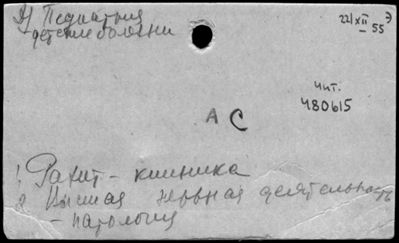 Педиатрия
детские болезни
22/XII - 55
Э
чит.
480615
А С
1 Рахит - клиника
2 Высшая нервная деятельность
- патология